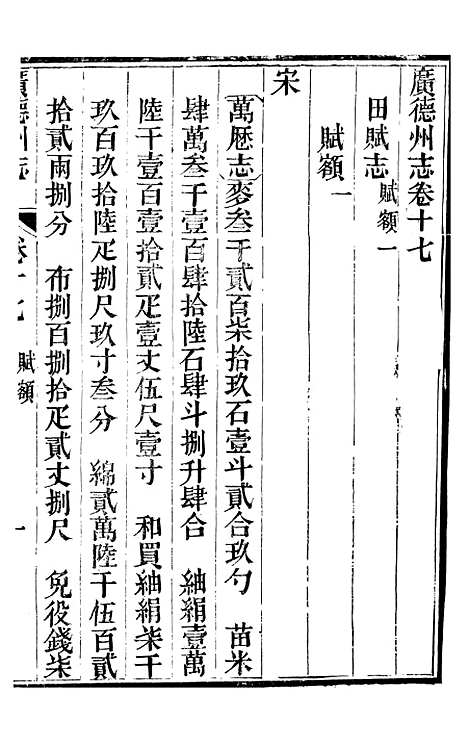 廣德州志卷十七
田賦志 賦額一
賦額一
宋
萬厯志麥叁千貳百柒拾玖石壹斗貳合玖勺 苗米
肆萬叁千壹百肆拾陸石肆斗捌升肆合 紬絹壹萬
陸千壹百壹拾貳疋壹丈伍尺壹寸 和買紬絹柒千
玖百玖拾陸疋捌尺玖寸叁分 綿貳萬陸千伍百貳
拾貳兩捌分 布捌百捌拾疋貳丈捌尺 免役錢柒
廣德州志 卷十七 賦額 一